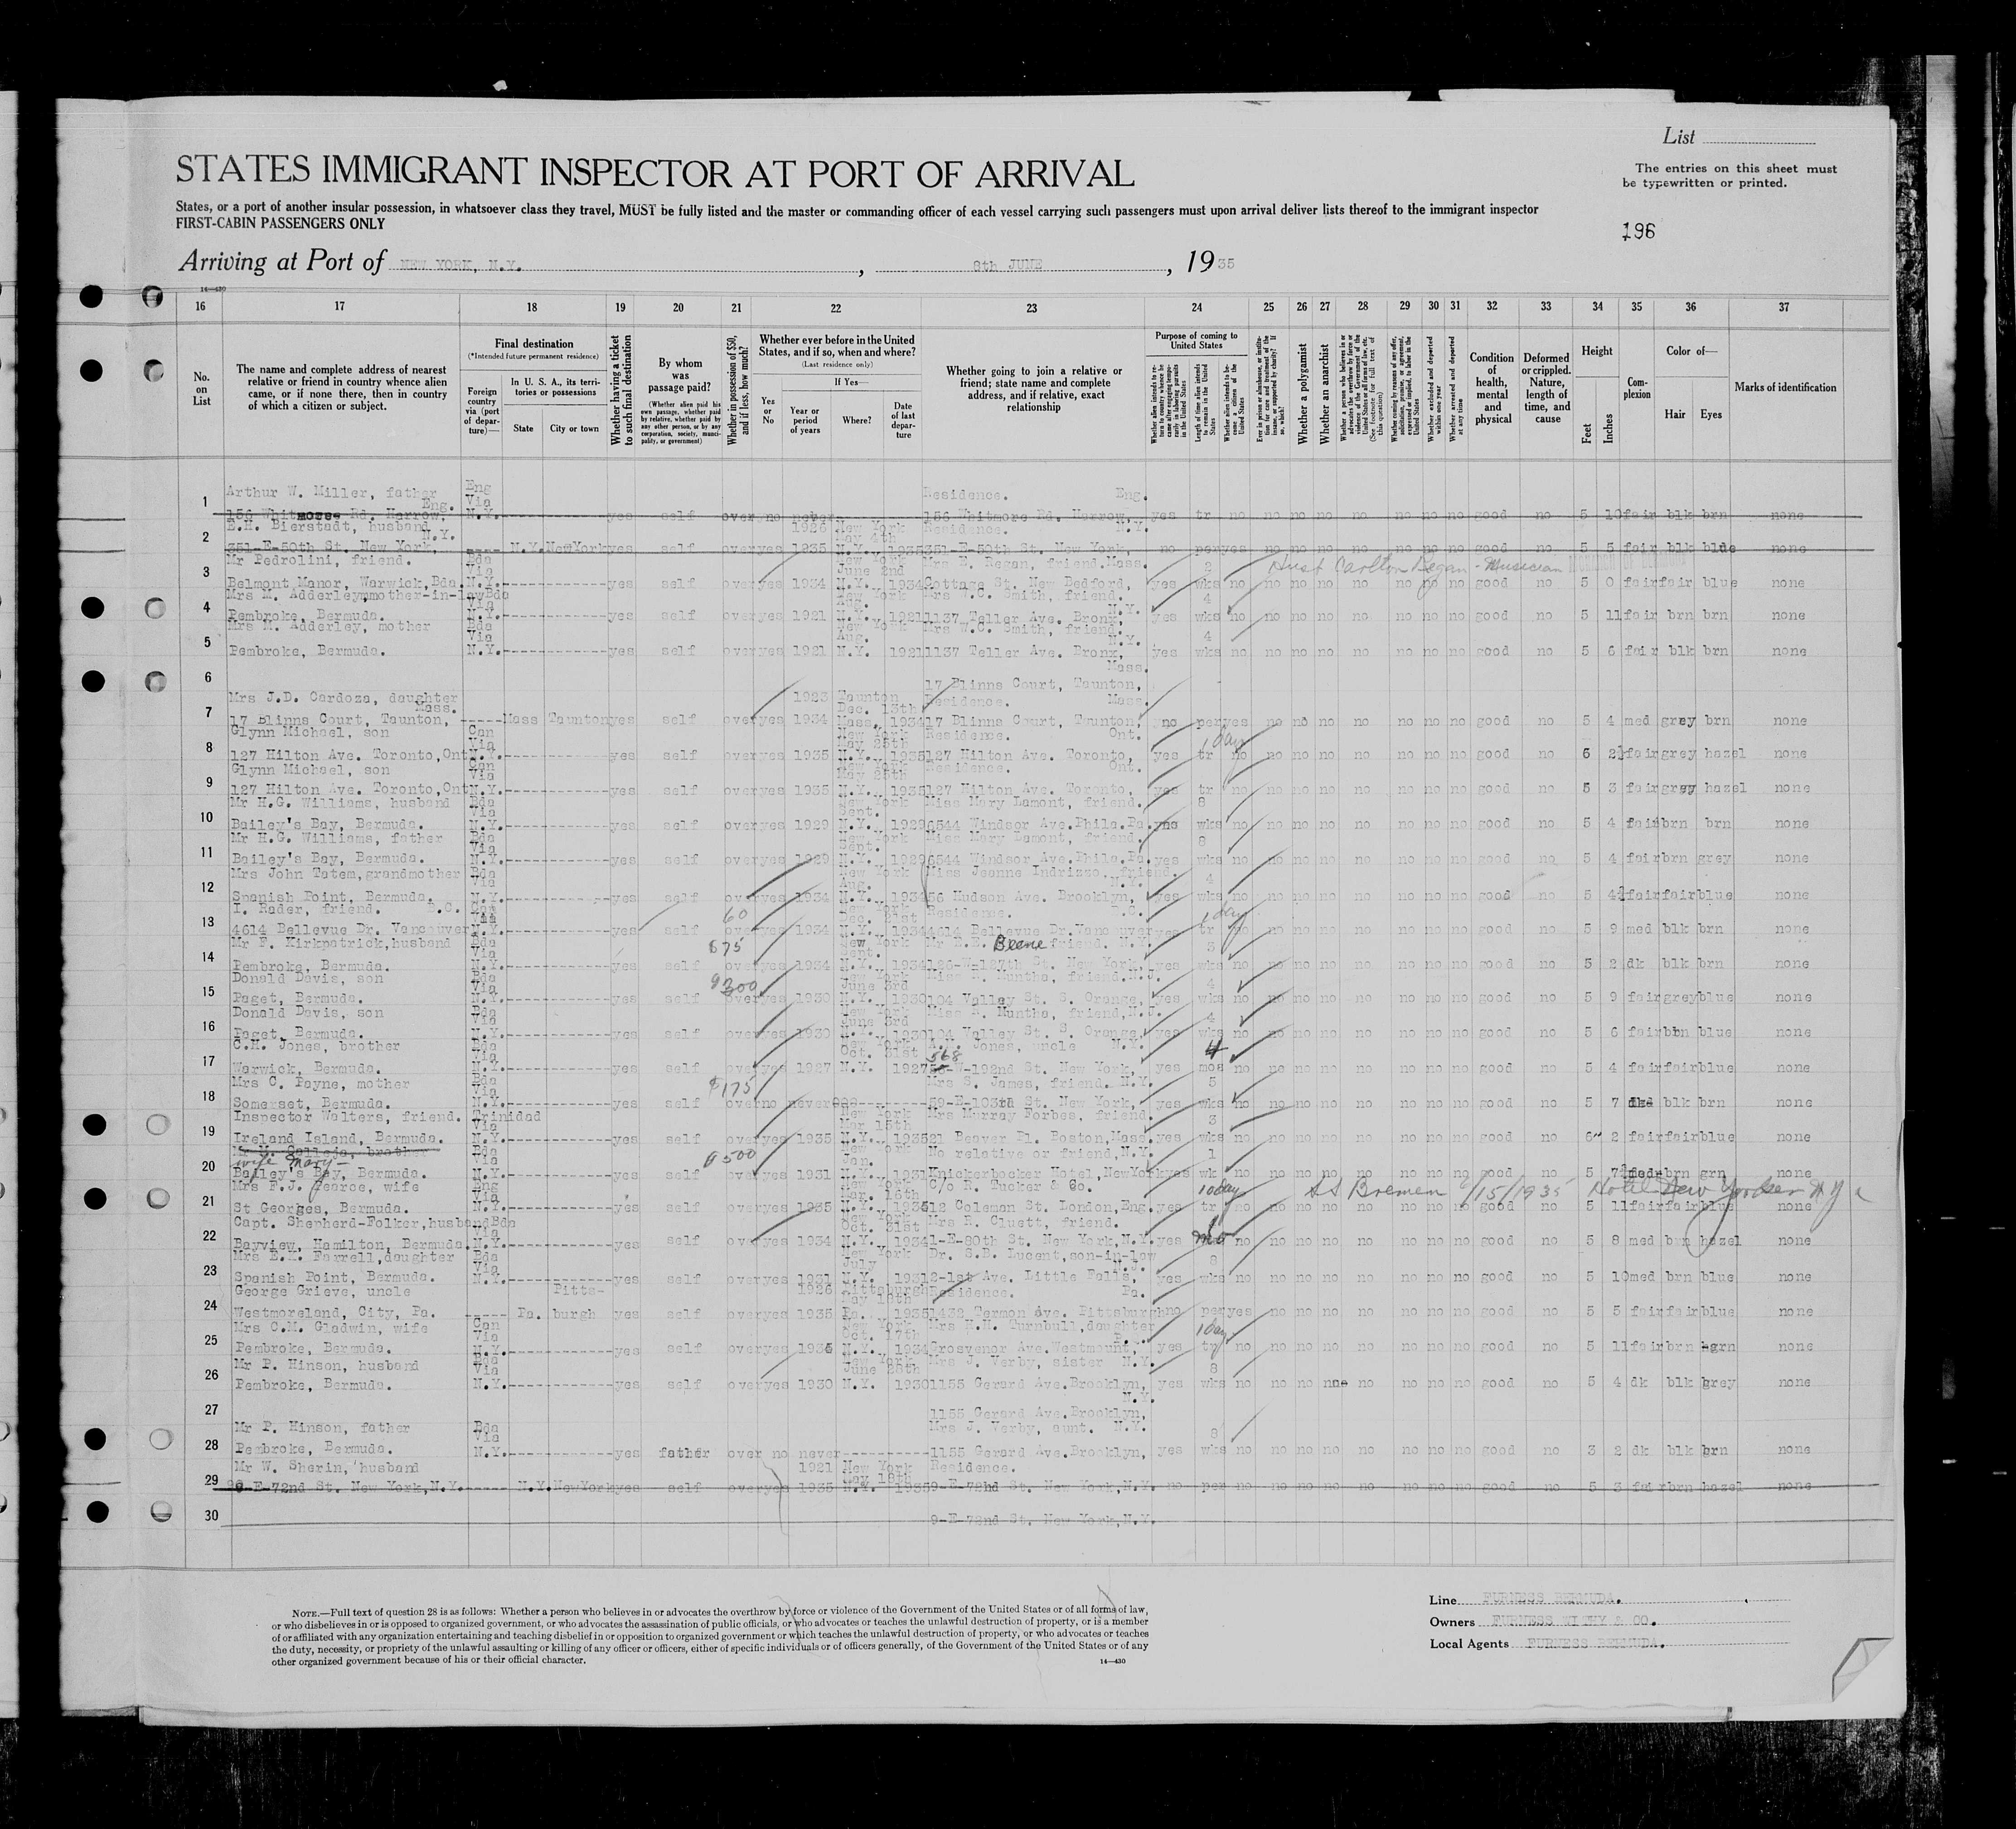 List
STATES IMMIGRANT INSPECTOR AT PORT OF ARRIVAL
The entries on this sheet must
be typewritten or printed.
States, or a port of another insular possession, in whatsoever class they travel, MUST be fully listed and the master or commanding officer of each vessel carrying such passengers must upon arrival deliver lists thereof to the immigrant inspector
FIRST-CABIN PASSENGERS ONLY
196
Arriving at Port of NEW YORK, N.Y. , 8th JUNE , 1935
14—430
16 17 18 19 20 21 22 23 24 25 26 27 28 29 30 31 32 33 34 35 36 37
No. on List
The name and complete address of nearest relative or friend in country whence alien came, or if none there, then in country of which a citizen or subject.
Final destination
(*Intended future permanent residence)
Foreign country via (port of departure)—
In U. S. A., its territories or possessions
State City or town
Whether having a ticket to such final destination
By whom was passage paid?
(Whether alien paid his own passage, whether paid by relative, whether paid by any other person, or by any corporation, society, municipality, or government)
Whether in possession of $50, and if less, how much?
Whether ever before in the United States, and if so, when and where?
(Last residence only)
Yes or No
If Yes—
Year or period of years
Where?
Date of last departure
Whether going to join a relative or friend; state name and complete address, and if relative, exact relationship
Purpose of coming to United States
Length of time alien intends to remain in the United States
Whether a polygamist
Whether an anarchist
Condition of health, mental and physical
Deformed or crippled. Nature, length of time, and cause
Height
Feet Inches
Complexion
Color of—
Hair Eyes
Marks of identification
1 Arthur W. Miller, father Eng. Eng Via N.Y. yes self over no never Residence. Eng. 156 Whitmore Rd. Harrow, yes tr no no no no no no no no good no 5 10 fair blk brn none
2 E.H. Bierstadt, husband N.Y. 351-E-50th St. New York, N.Y. New York yes self over yes 1926 1935 New York May 4th N.Y. 1935 Residence. N.Y. 351-E-50th St. New York, no per yes no no no no no no no good no 5 5 fair blk blue none
3 Mr Pedrolini, friend. Belmont Manor, Warwick, Bda. Bda Via N.Y. yes self over yes 1934 June 2nd N.Y. 1934 Mrs E. Regan, friend. Mass. Cottage St. New Bedford, yes 2 wks no no no no no no no no good no 5 0 fair fair blue none
Husb Carlton Regan - Musician
4 Mrs M. Adderley, mother-in-law Pembroke, Bermuda. Bda Via N.Y. yes self over yes 1921 New York Aug. N.Y. 1921 Mrs W.C. Smith, friend. N.Y. 1137 Teller Ave. Bronx, yes 4 wks no no no no no no no no good no 5 11 fair brn brn none
5 Mrs M. Adderley, mother Pembroke, Bermuda. Bda Via N.Y. yes self over yes 1921 New York Aug. N.Y. 1921 Mrs W.C. Smith, friend. N.Y. 1137 Teller Ave. Bronx, yes 4 wks no no no no no no no no good no 5 6 fair blk brn none
6 Mass. 17 Blinns Court, Taunton,
7 Mrs J.D. Cardoza, daughter Mass. 17 Blinns Court, Taunton, Mass Taunton yes self over yes 1923 1934 Taunton Dec. 13th Mass. 1934 Residence. Mass. 17 Blinns Court, Taunton, no per yes no no no no no no no good no 5 4 med grey brn none
8 Glynn Michael, son 127 Hilton Ave. Toronto, Ont Can Via N.Y. yes self over yes 1935 New York May 25th N.Y. 1935 Residence. Ont. 127 Hilton Ave. Toronto, yes 1 day tr no no no no no no no no good no 6 2½ fair grey hazel none
9 Glynn Michael, son 127 Hilton Ave. Toronto, Ont Can Via N.Y. yes self over yes 1935 New York May 25th N.Y. 1935 Residence. Ont. 127 Hilton Ave. Toronto, yes tr no no no no no no no no good no 5 3 fair grey hazel none
10 Mr H.G. Williams, husband Bailey's Bay, Bermuda. Bda Via N.Y. yes self over yes 1929 New York Sept. N.Y. 1929 Miss Mary Lamont, friend. 6544 Windsor Ave. Phila. Pa. 8 wks no no no no no no no no good no 5 4 fair brn brn none
11 Mr H.G. Williams, father Bailey's Bay, Bermuda. Bda Via N.Y. yes self over yes 1929 New York Sept. N.Y. 1929 Miss Mary Lamont, friend. 6544 Windsor Ave. Phila. Pa. yes 8 wks no no no no no no no no good no 5 4 fair brn grey none
12 Mrs John Tatem, grandmother Spanish Point, Bermuda. Bda Via N.Y. yes self over yes 1934 New York Aug. N.Y. 1934 Miss Jeanne Indrizzo, friend. N.Y. 56 Hudson Ave. Brooklyn, yes 4 wks no no no no no no no no good no 5 4½ fair fair blue none
13 I. Rader, friend. B.C. 4614 Bellevue Dr. Vancouver Can Via N.Y. yes self 60 over yes 1934 New York Dec. 21st N.Y. 1934 Residence. B.C. 4614 Bellevue Dr. Vancouver yes 1 day tr no no no no no no no no good no 5 9 med blk brn none
14 Mr F. Kirkpatrick, husband Pembroke, Bermuda. Bda Via N.Y. yes self $75 over yes 1934 New York Sept. N.Y. 1934 Mr R.E. Beene friend. N.Y. St. New York, yes 3 wks no no no no no no no no good no 5 2 dk blk brn none
15 Donald Davis, son Paget, Bermuda. Bda Via N.Y. yes self $300 over yes 1930 New York June 3rd N.Y. 1930 Miss R. Munths, friend, N.J. 104 Valley St. S. Orange, yes 4 wks no no no no no no no no good no 5 9 fair grey blue none
16 Donald Davis, son Paget, Bermuda. Bda Via N.Y. yes self over yes 1930 New York June 3rd N.Y. 1930 Miss R. Munths, friend, N.J. 104 Valley St. S. Orange, yes 4 wks no no no no no no no no good no 5 6 fair brn blue none
17 C.H. Jones, brother Warwick, Bermuda. Bda Via N.Y. yes self over yes 1927 New York Oct. 31st N.Y. 1927 Jones, uncle N.Y. 568 -W-192nd St. New York, yes 4 mos no no no no no no no no good no 5 4 fair fair blue none
18 Mrs C. Payne, mother Somerset, Bermuda. Bda Via N.Y. yes self $175 over no never Mrs S. James, friend. N.Y. 59-E-103rd St. New York, yes 5 wks no no no no no no no no good no 5 7 blk brn none
19 Inspector Walters, friend. Ireland Island, Bermuda. Trinidad Via N.Y. yes self over yes 1935 New York Mar 15th N.Y. 1935 Mrs Murray Forbes, friend. 21 Beaver Pl. Boston, Mass. yes 3 wks no no no no no no no no good no 6 2 fair fair blue none
20 wife Mary- Bailey's Bay, Bermuda. Bda Via N.Y. yes self $500 over yes 1931 New York Jan. N.Y. 1931 No relative or friend, N.Y. Knickerbocker Hotel, New York yes 1 wk no no no no no no no no good no 5 7½ brn grn none
21 Mrs F.J. Pearce, wife St Georges, Bermuda. Eng Via N.Y. yes self over yes 1935 New York Mar. 16th N.Y. 1935 C/o R. Tucker & Co. 12 Coleman St. London, Eng. yes 10 day tr no no no no no no no no good no 5 11 fair fair blue none
SS Bremen 6/15/1935 Hotel New Yorker N Y
22 Capt. Shepherd-Folker, husband Bayview, Hamilton, Bermuda. Bda Via N.Y. yes self over yes 1934 New York Oct. 31st N.Y. 1934 Mrs R. Cluett, friend. 1-E-80th St. New York, N.Y. yes no no no no no no no no good no 5 8 med brn hazel none
23 Mrs E.M. Farrell, daughter Spanish Point, Bermuda. Bda Via N.Y. yes self over yes 1931 New York July N.Y. 1931 Dr. S.B. Lucent, son-in-law N.J. 2-1st Ave. Little Falls, yes 8 wks no no no no no no no no good no 5 10 med brn blue none
24 George Grieve, uncle Westmoreland, City, Pa. Pa. Pitts- burgh yes self over yes 1926 1935 Pittsburgh May 18th Pa. 1935 Residence. Pa. 1432 Termon Ave. Pittsburgh no per yes no no no no no no no good no 5 5 fair fair blue none
25 Mrs C.M. Gladwin, wife Pembroke, Bermuda. Can Via N.Y. yes self over yes New York Oct. 17th N.Y. 1934 Mrs H.H. Turnbull, daughter P.Q. Grosvenor Ave. Westmount, yes 1 day tr no no no no no no no no good no 5 11 fair brn grn none
26 Mr P. Hinson, husband Pembroke, Bermuda. Bda Via N.Y. yes self over yes 1930 New York June 28th N.Y. 1930 Mrs J. Verby, sister N.Y. 1155 Gerard Ave. Brooklyn, yes 8 wks no no no no no no no no good no 5 4 dk blk grey none
27 N.Y. 1155 Gerard Ave. Brooklyn,
28 Mr P. Hinson, father Pembroke, Bermuda. Bda Via N.Y. yes father over no never Mrs J. Verby, aunt. N.Y. 1155 Gerard Ave. Brooklyn, yes 8 wks no no no no no no no no good no 3 2 dk blk brn none
29 Mr W. Sherin, husband 9-E-72nd St. New York, N.Y. N.Y. New York yes self over yes 1921 1935 New York May 18th N.Y. 1935 Residence. 9-E-72nd St. New York, N.Y. no per no no no no no no no no good no 5 3 fair brn hazel none
30 9-E-72nd St. New York, N.Y.
NOTE.—Full text of question 28 is as follows: Whether a person who believes in or advocates the overthrow by force or violence of the Government of the United States or of all forms of law,
or who disbelieves in or is opposed to organized government, or who advocates the assassination of public officials, or who advocates or teaches the unlawful destruction of property, or is a member
of or affiliated with any organization entertaining and teaching disbelief in or opposition to organized government or which teaches the unlawful destruction of property, or who advocates or teaches
the duty, necessity, or propriety of the unlawful assaulting or killing of any officer or officers, either of specific individuals or of officers generally, of the Government of the United States or of any
other organized government because of his or their official character.
14—430
Line FURNESS BERMUDA.
Owners FURNESS WITHY & CO.
Local Agents FURNESS BERMUDA.